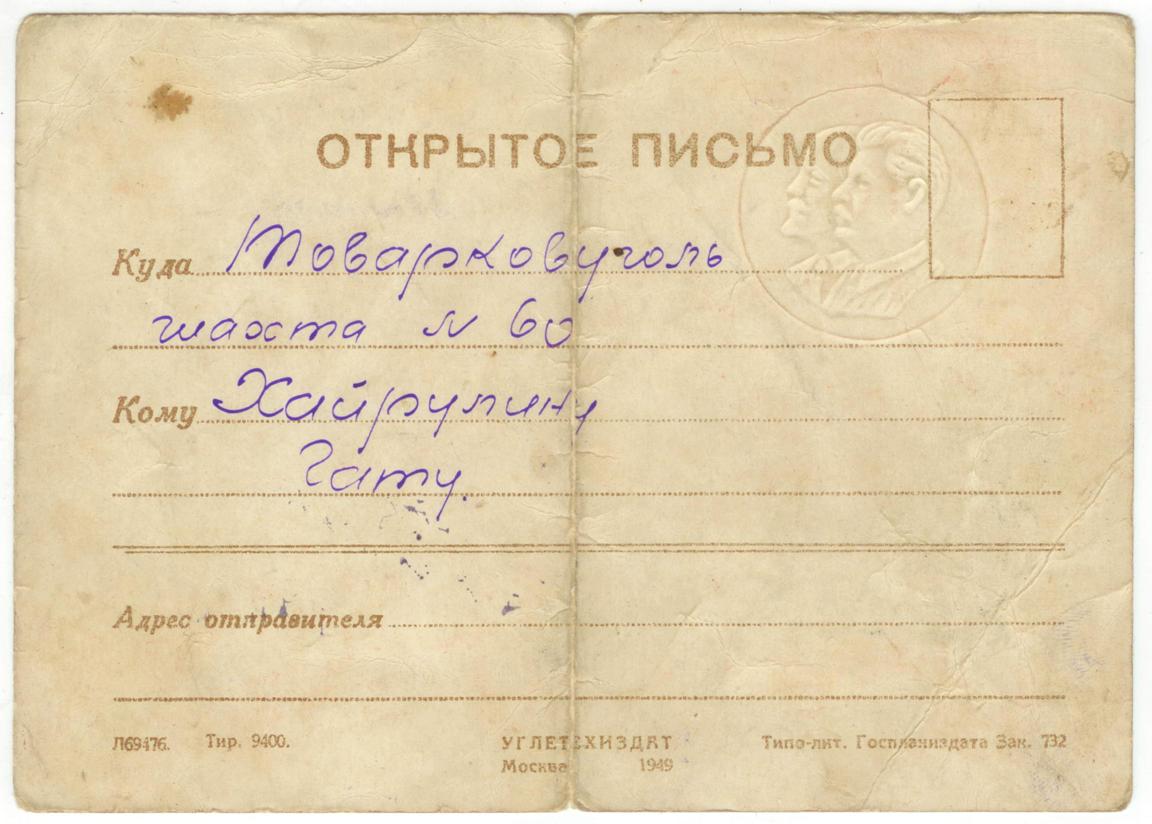 ОТКРЫТОЕ ПИСЬМО
Куда Товарковуголь
шахта N 60
Кому Хайрулину
Гату.
Адрес отправителя
Л69476. Тир. 9400. УГЛЕТЕХИЗДАТ Типо-лит. Госпланиздата Зак. 732
Москва 1949